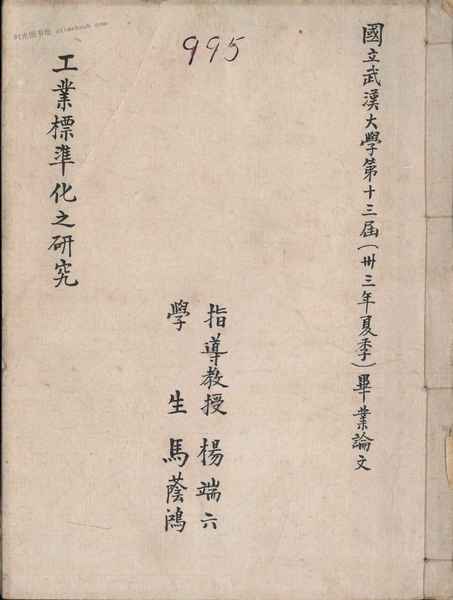 國立武漢大學第十三屆(卅三年夏季)畢業論文
995
指導教授 楊端六
學生 馬蔭鴻
工業標準化之研究